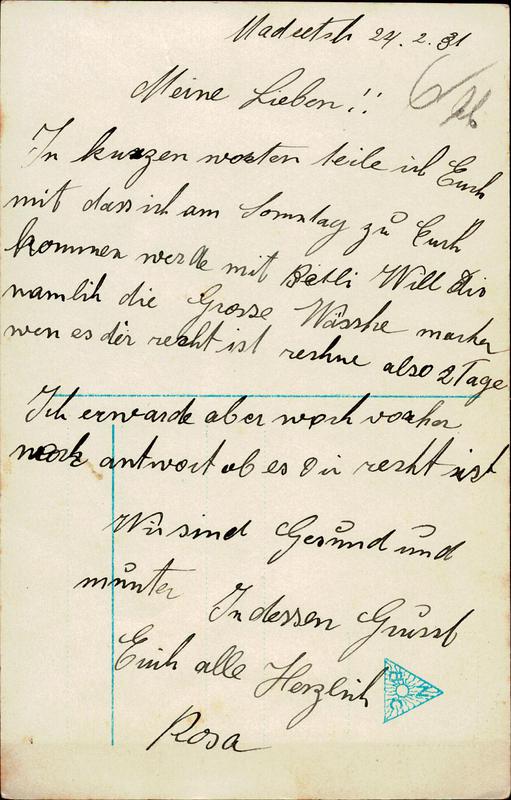 Madretsh 24. 2. 31
Meine Lieben!!
In kurzen worten teile ich Euch
mit dass ich am Sonntag zu Euch
kommen werde mit Betli Will Dir
namlih die Grosse Wässhe machen
wen es dir resht ist reshne also 2 Tage
Ich erwarde aber noch vorher
antwort ob es Dir resht ist
Wir sind Gesund und
munter Indessen Grüsst
Euch alle Herzlich
Rosa